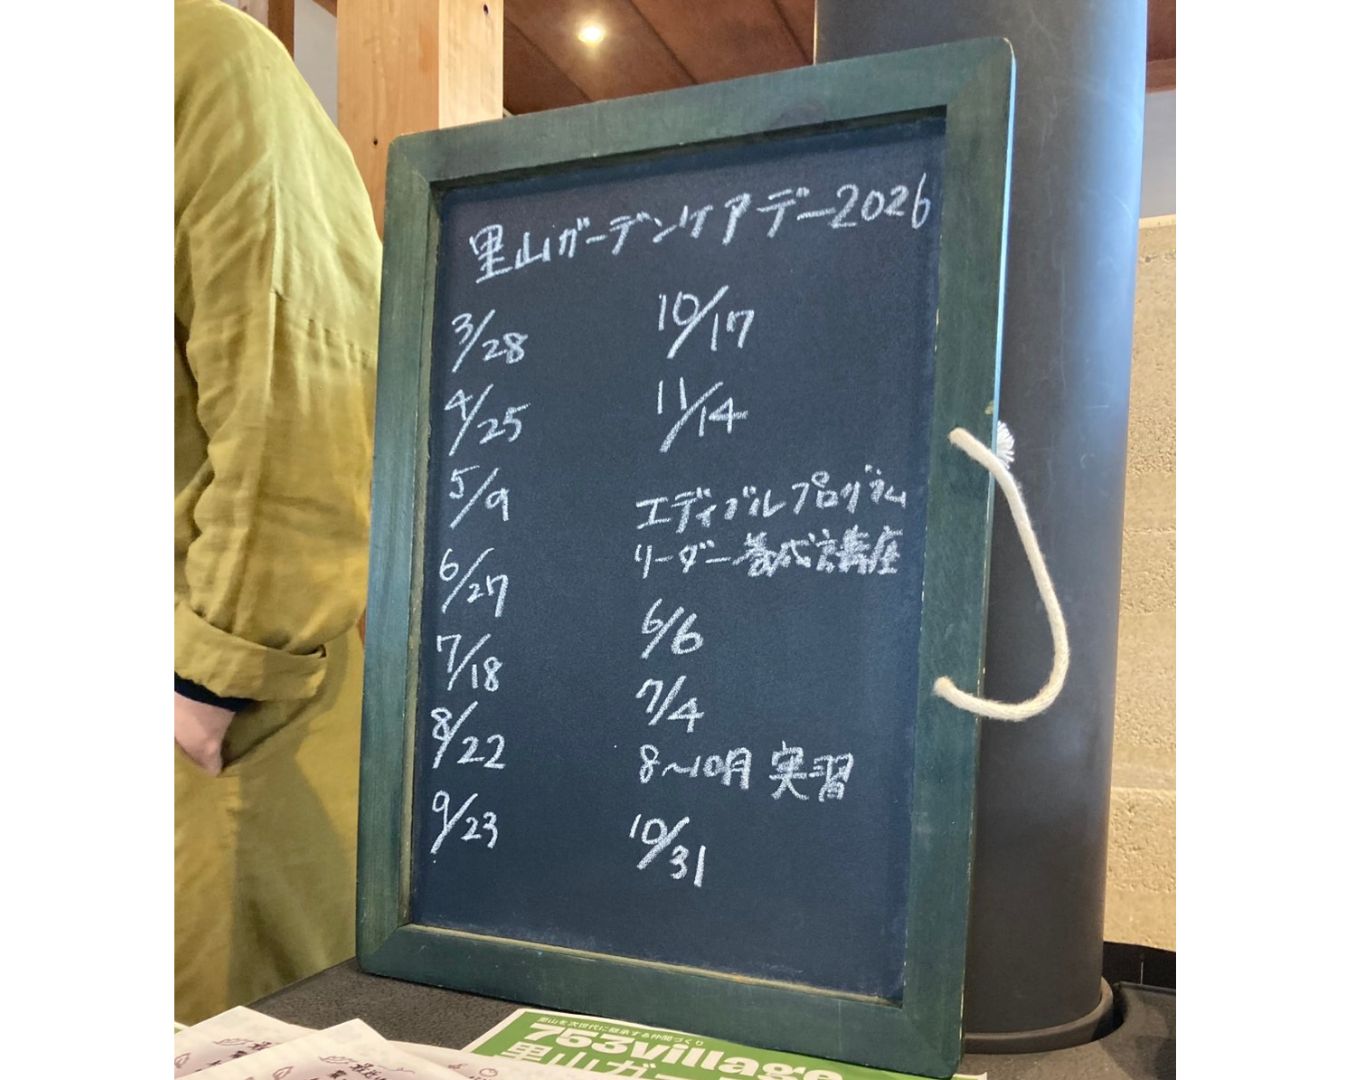 里山ガーデンケアデー2026
3/28
4/25
5/9
6/27
7/18
8/22
9/23
10/17
11/14
エディブルプログラム
リーダー養成講座
6/6
7/4
8〜10月 実習
10/31
里山を次世代に継承する仲間づくり
753village
里山ガ